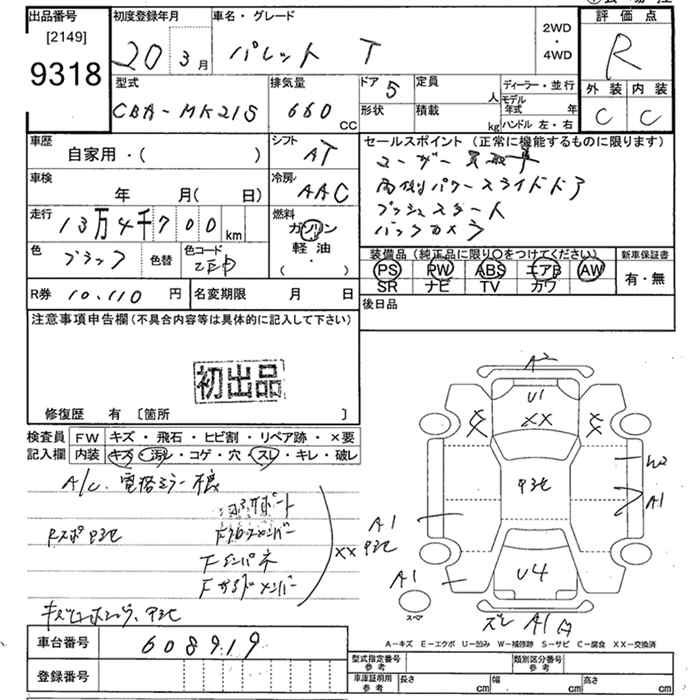 出品番号
[2149]
9318
初度登録年月
20年 3月
車名・グレード
パレット T
2WD
・
4WD
評価点
R
外装 内装
C C
型式
CBA-MK21S
排気量
660 CC
ドア 5
形状
定員 人
積載 kg
ディーラー・並行
モデル年式 年
ハンドル 左・右
車歴
自家用・( )
シフト
AT
車検
年 月( 日)
冷房
AAC
走行
13万4千700 km
燃料
ガソリン
軽油
( ・ )
色
ブラック
色替
色コード
ZEP
R券 10,110 円
名変期限 月 日
セールスポイント (正常に機能するものに限ります)
両側パワースライドドア
プッシュスタート
バックカメラ
装備品 (純正品に限り○をつけてください)
PS PW ABS エアB AW
SR ナビ TV カワ
新車保証書
有・無
後日品
注意事項申告欄 (不具合内容等は具体的に記入して下さい)
初出品
修復歴 有 [箇所 ]
検査員記入欄
FW キズ・飛石・ヒビ割・リペア跡・×要
内装 キズ・汚レ・コゲ・穴・スレ・キレ・破レ
A/C、電格ミラー
Fクロスメンバー
Fインパネ
Fサイドメンバー
XX
A2
U1
XX
W2
A1
A1
A1
U4
スペア
A1
A-キズ E-エクボ U-凹み W-補修跡 S-サビ C-腐食 XX-交換済
車台番号 608919
登録番号
型式指定番号 参考
類別区分番号 参考
車庫証明用 参考
長さ cm 幅 cm 高さ cm